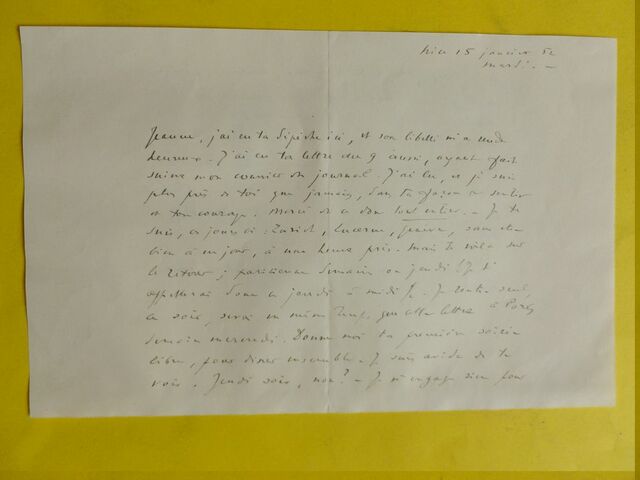 Nice 15 janvier 52
mardi. —
Jeanne, j'ai eu ta dépêche ici, et son libellé m'a rendu
heureux. J'ai eu ta lettre du 9 aussi, ayant fait
suivre mon courrier du journal. J'ai lu, et je suis
plus près de toi que jamais, dans ta façon de sentir
et ton courage. Merci de ce don tout entier. — Je te
suis, ces jours-ci : Zurich, Lucerne, Genève, sans
bien à un jour, à une heure près. Mais te voilà sur
le retour ; parisienne demain ou jeudi ! Je t'
appellerai donc jeudi à midi. Je rentre
ce soir, serai en même temps que cette lettre à Paris
demain mercredi. Donne moi ta première soirée
libre, pour dîner ensemble. Je suis avide de te
voir. Jeudi soir, non ? — Je n'engage rien pour